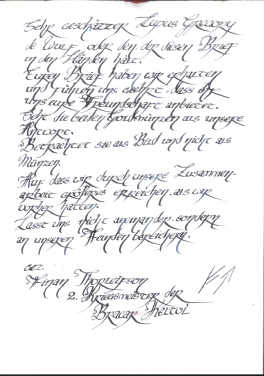 Sehr geschätzter Lupus Gregory
de Wulf, oder den der diesen Brief
in den Händen hält.
Euren Brief haben wir erhalten
und fühlen uns geehrt, dass ihr
uns eure Freundschaft anbietet.
Seht die beiden Goldmünzen als unsere
Antwort.
Betrachtet sie als Bund und nicht als
Münzen.
Auf dass wir durch unsere Zusammen-
arbeit größeres erreichen als wir
vorher hatten.
Lasst uns nicht aneinander sondern
an unseren Feinden bereichern.
gez.
Thorleifson
2. Kriegsmeister der
Bracar